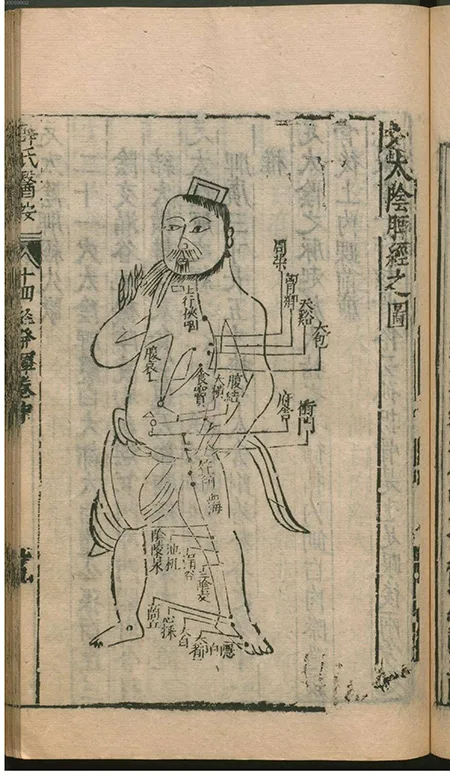 足太陰脾經之圖
周榮
胸鄉
天谿
大包
上行俠咽
腹哀
食竇
大橫
腹結
府舍
衝門
箕門
血海
陰陵泉
地机
漏谷
三陰交
商丘
公孫
太白
大都
隱白
薛氏醫按
十四經發揮卷中